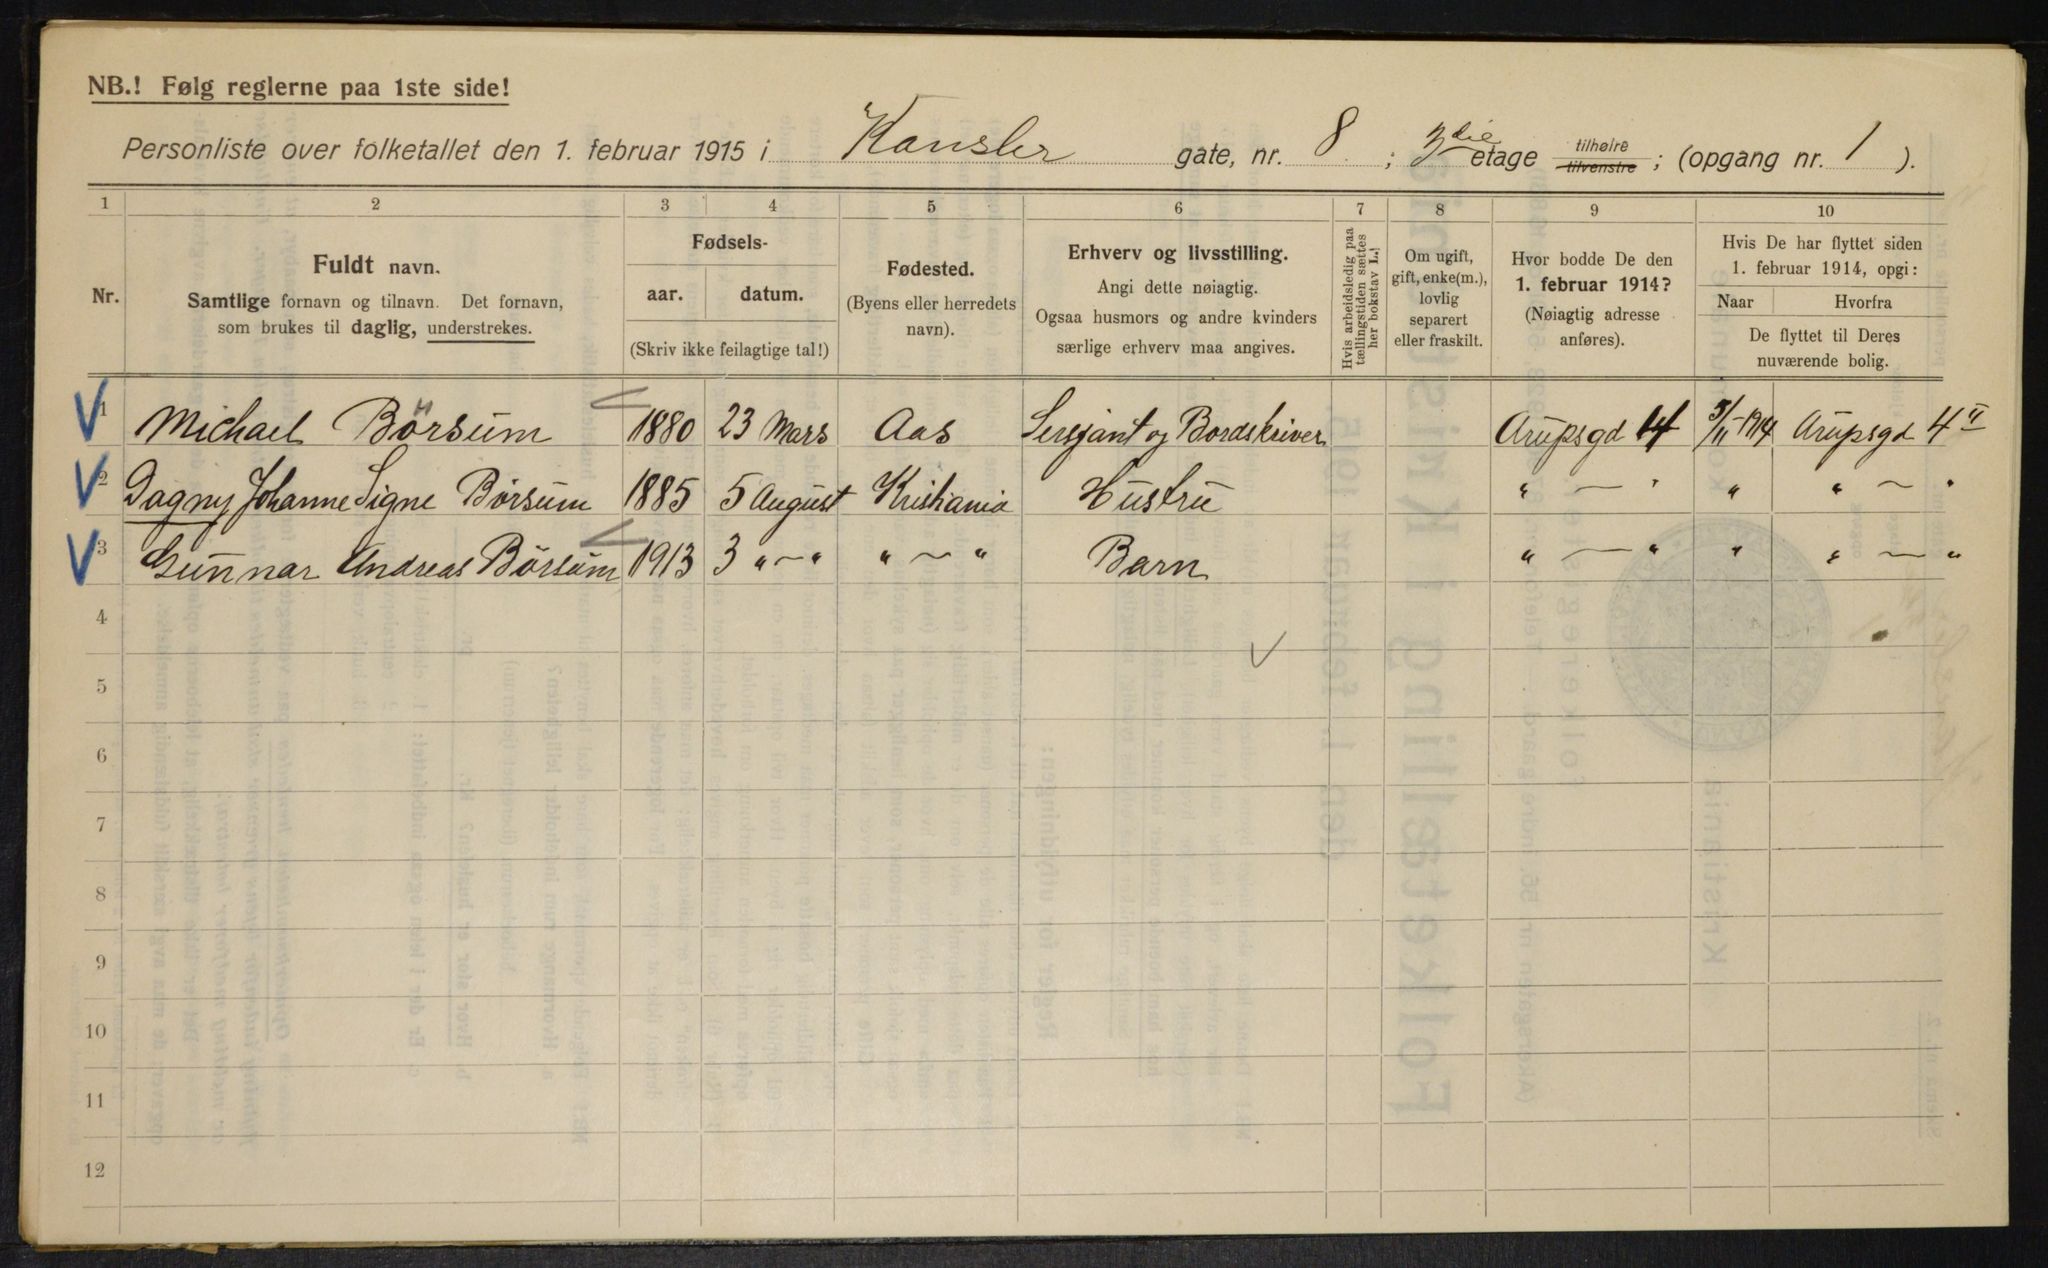 NB.! Følg reglerne paa 1ste side!
Personliste over folketallet den 1. februar 1915 i Kansler gate, nr. 8 ; 3die etage tilhøire tilvenstre ; (opgang nr. 1 ).
1 2 3 4 5 6 7 8 9 10
Nr.
Fuldt navn.
Samtlige fornavn og tilnavn. Det fornavn,
som brukes til daglig, understrekes.
Fødsels-
aar. datum.
(Skriv ikke feilagtige tal!)
Fødested.
(Byens eller herredets
navn).
Erhverv og livsstilling.
Angi dette nøiagtig.
Ogsaa husmors og andre kvinders
særlige erhverv maa angives.
Hvis arbeidsledig paa
tællingstiden sættes
her bokstav L.!
Om ugift,
gift, enke(m.),
lovlig
separert
eller fraskilt.
Hvor bodde De den
1. februar 1914?
(Nøiagtig adresse
anføres).
Hvis De har flyttet siden
1. februar 1914, opgi:
Naar Hvorfra
De flyttet til Deres
nuværende bolig.
1 Michael Børsum 1880 23 Mars Aas Sersjant og Bordskriver Arupsgd 4 5/11-1914 Arupsgd 4 II
2 Dagny Johanne Signe Børsum 1885 5 August Kristiania Hustru " — " " " — "
3 Gunnar Andreas Børsum 1913 3 " — " " — " Barn " — " " " — "
4
5
6
7
8
9
10
11
12